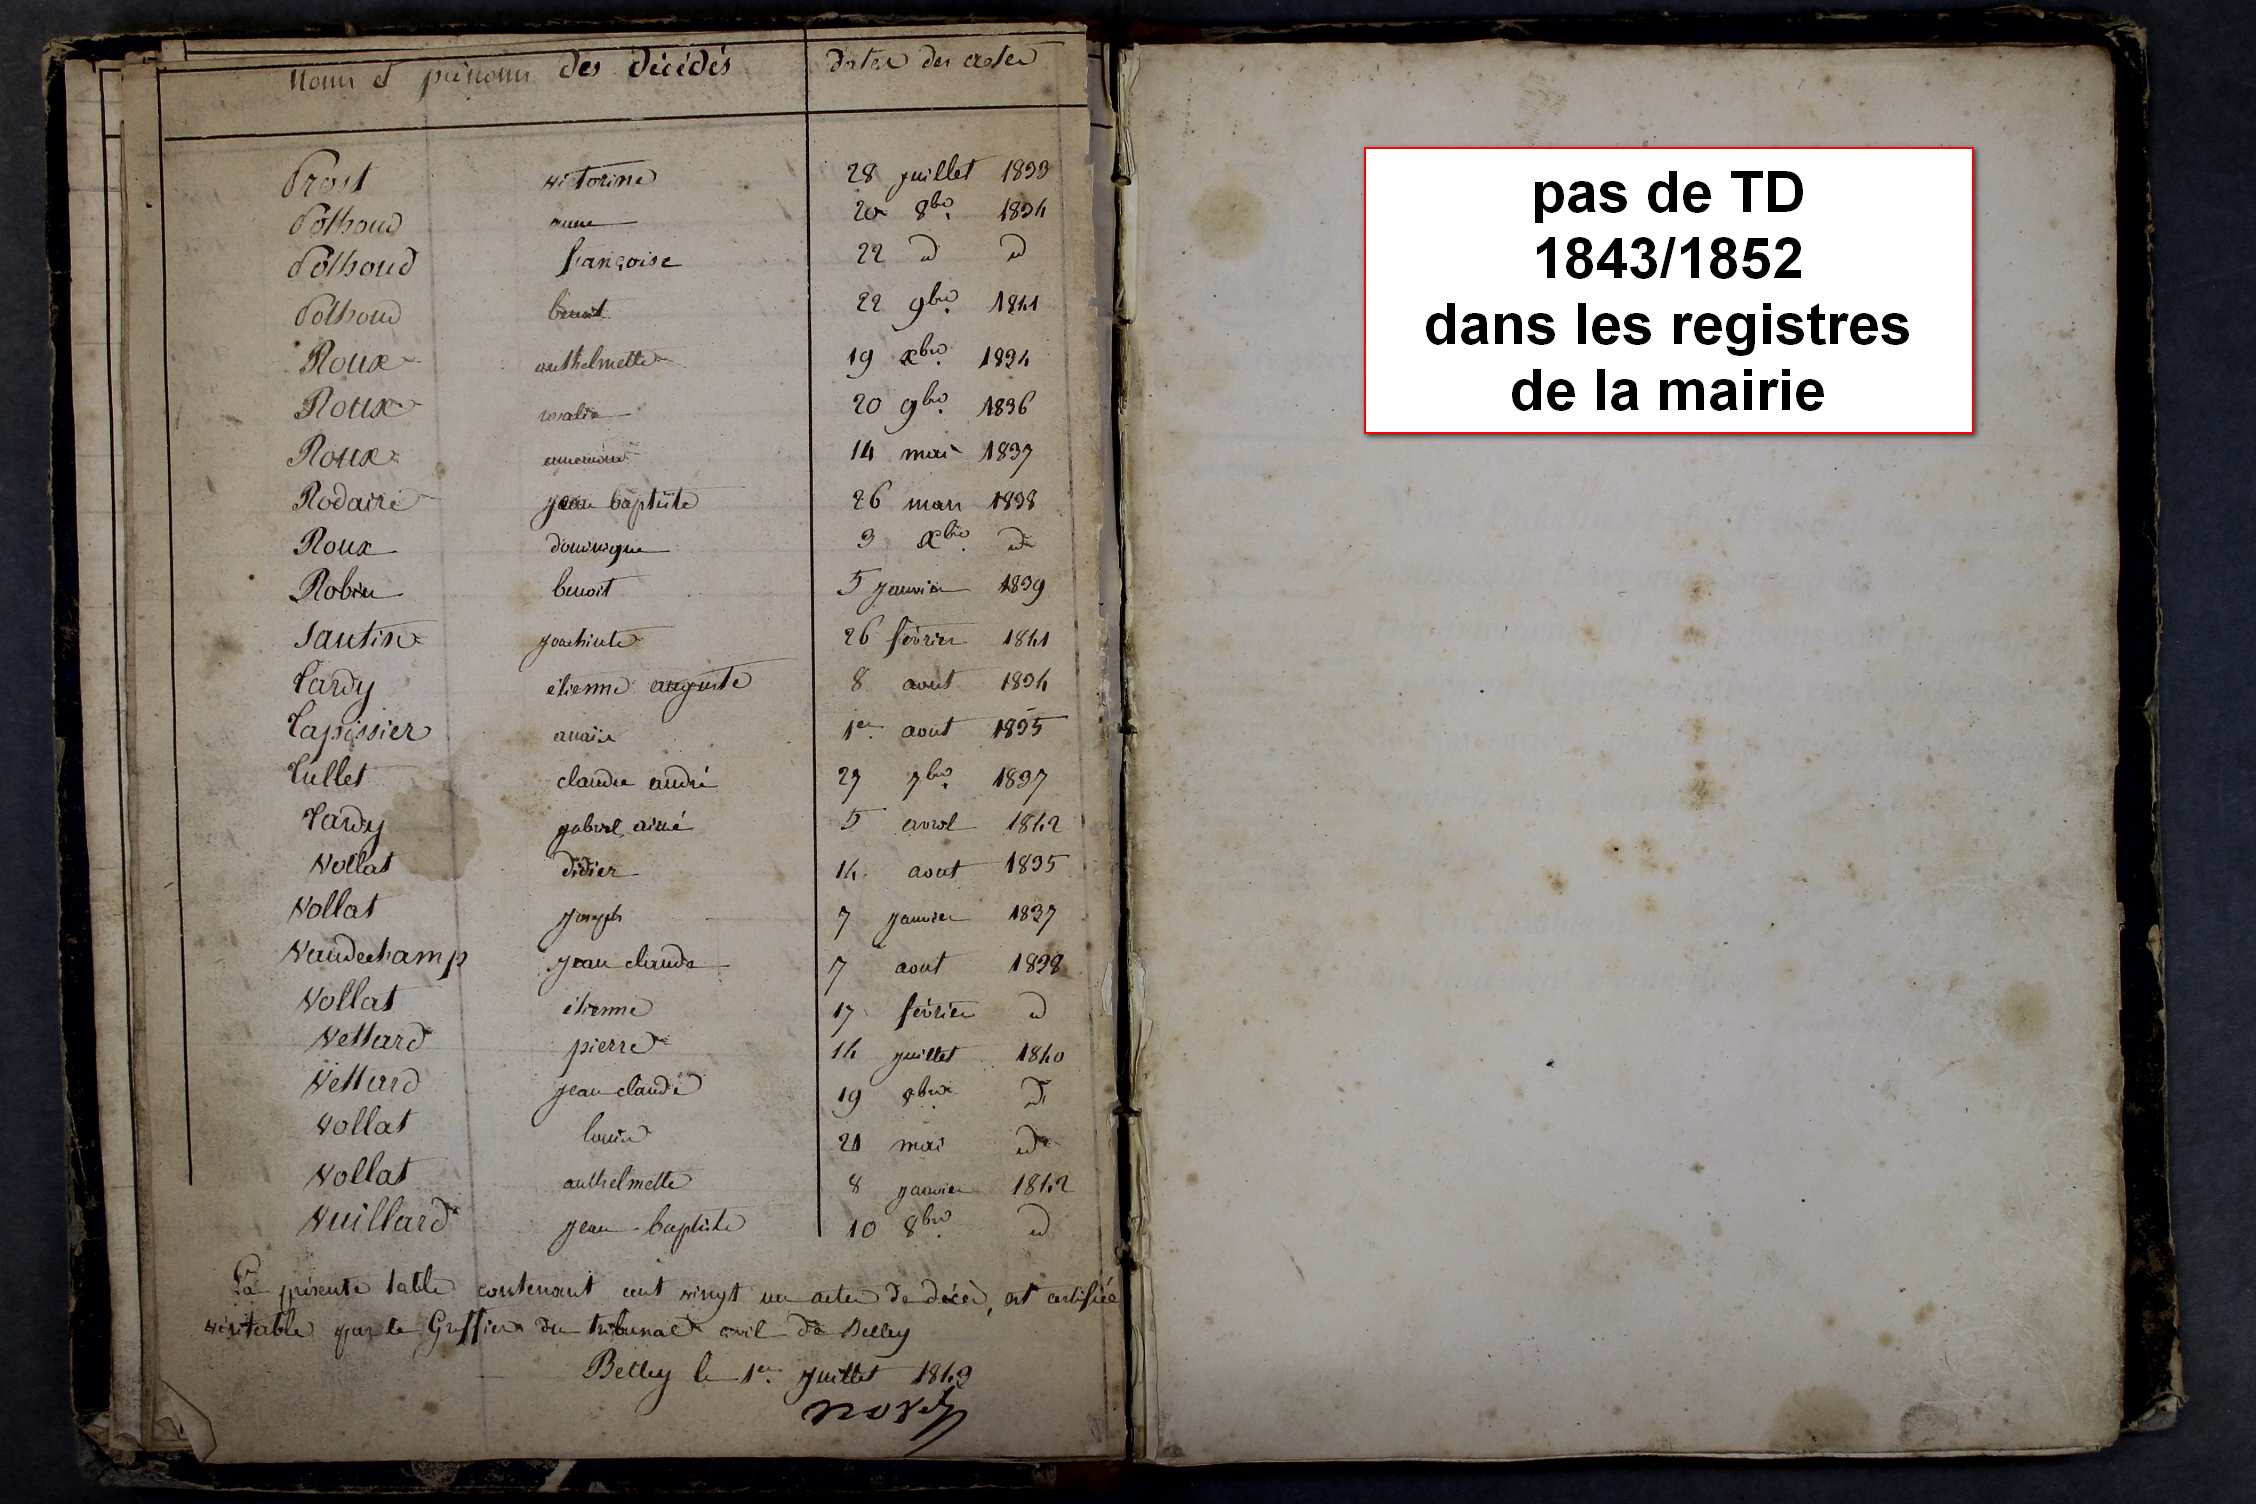 Noms et prénoms des décédés dates des actes
Prost victorine 28 juillet 1833
Pothoud anne 20 8bre 1834
Pothoud françoise 22 d d
Pothoud benoit 22 9bre 1841
Roux anthelmette 19 xbre 1834
Roux rosalie 20 9bre 1836
Roux 14 mai 1837
Rodaire jean baptiste 26 mars 1838
Roux dominique 3 xbre d
Robin benoit 5 janvier 1839
Santin 26 février 1841
Tardy étienne auguste 8 aout 1834
Tapissier 1er aout 1835
Tullet claude andré 27 7bre 1837
Tardy gabriel aimé 5 avril 1842
Vollat didier 14 aout 1835
Vollat joseph 7 janvier 1837
Vaudechamp jean claude 7 aout 1838
Vollat étienne 17 février d
Vettard pierre 14 juillet 1840
Vettard jean claude 19 8bre d
Vollat louise 21 mai d
Vollat anthelmette 8 janvier 1842
Vuillard jean-baptiste 10 8bre d
La présente table contenant cent vingt un actes de décès, est certifiée
véritable par le Greffier du tribunal civil de Belley
Belley le 1er juillet 1843
pas de TD
1843/1852
dans les registres
de la mairie